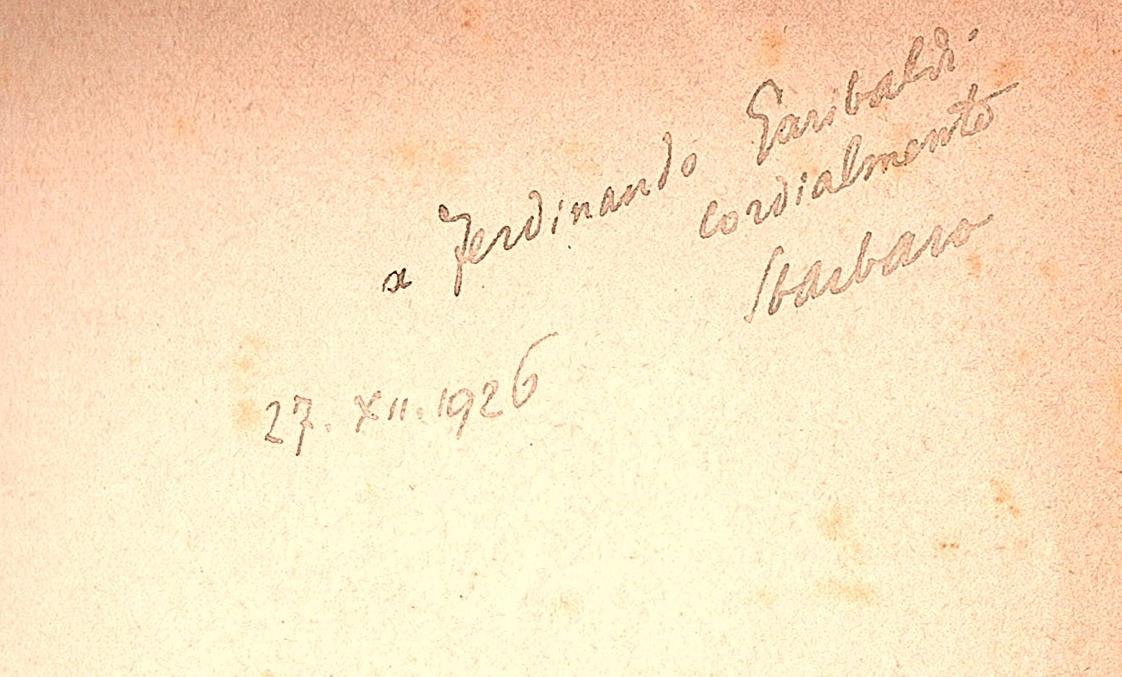 a Ferdinando Garibaldi
cordialmente
Sbarbaro
27. XII. 1926